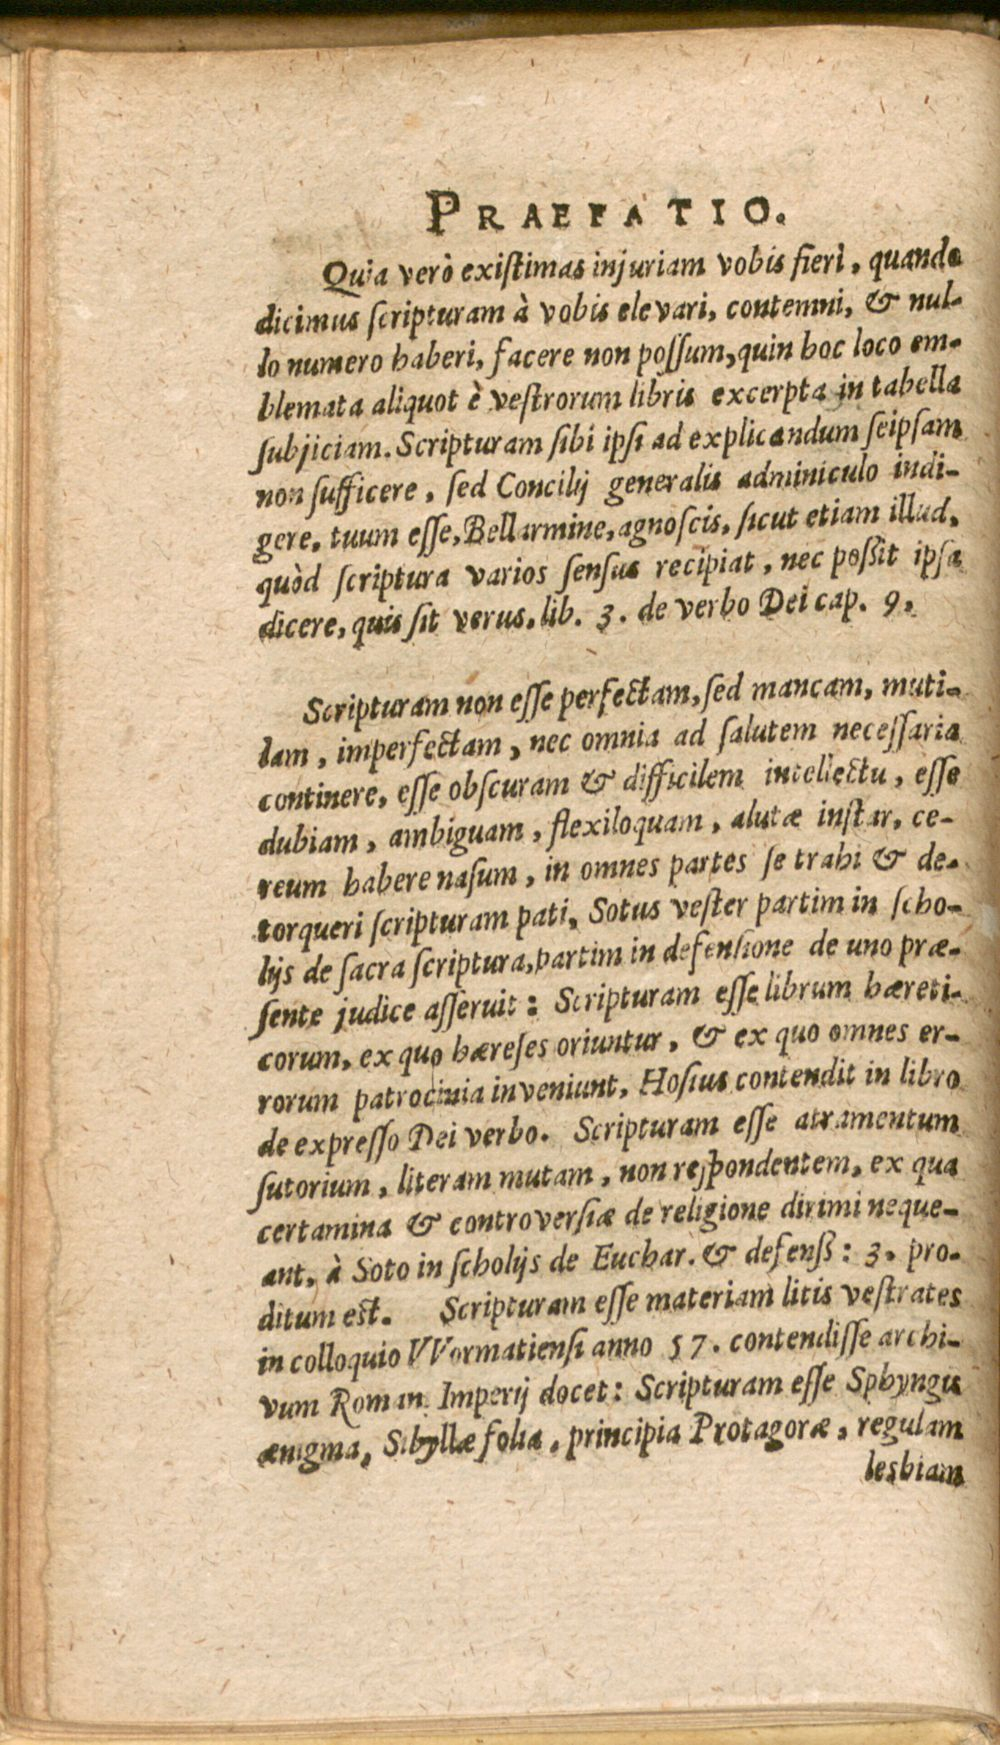 PRAEFATIO.
Quia verò existimas injuriam vobis fieri, quando
dicimus scripturam à vobis elevari, contemni, & nul-
lo numero haberi, facere non possum, quin hoc loco em-
blemata aliquot è vestrorum libris excerpta in tabella
subjiciam. Scripturam sibi ipsi ad explicandum seipsam
non sufficere, sed Concilij generalis adminiculo indi-
gere, tuum esse, Bellarmine, agnoscis, sicut etiam illud,
quòd scriptura varios sensus recipiat, nec possit ipsa
dicere, quis sit verus, lib. 3. de verbo Dei cap. 9,
Scripturam non esse perfectam, sed mancam, muti-
lam, imperfectam, nec omnia ad salutem necessaria
continere, esse obscuram & difficilem intellectu, esse
dubiam, ambiguam, flexiloquam, alutæ instar, ce-
reum habere nasum, in omnes partes se trahi & de-
torqueri scripturam pati, Sotus vester partim in scho-
lijs de sacra scriptura, partim in defensione de uno præ-
sente judice asseruit: Scripturam esse librum hæreti-
corum, ex quo hæreses oriuntur, & ex quo omnes er-
rorum patrocinia inveniunt, Hosius contendit in libro
de expresso Dei verbo. Scripturam esse atramentum
sutorium, literam mutam, non respondentem, ex qua
certamina & controversiæ de religione dirimi neque-
ant, à Soto in scholijs de Euchar. & defenß: 3, pro-
ditum est. Scripturam esse materiam litis vestrates
in colloquio VVormatiensi anno 57. contendisse archi-
vum Roman Imperij docet: Scripturam esse Sphyngis
ænigma, Sibyllæ folia, principia Protagoræ, regulam
lesbiam